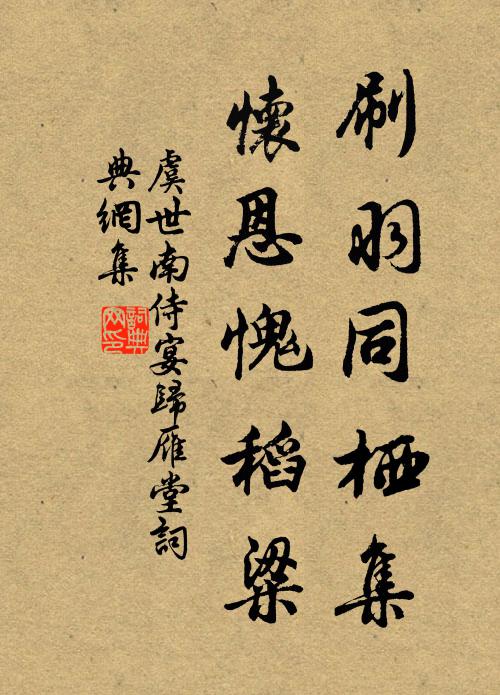 刷羽同栖集
懷恩愧稻粱
虞世南侍宴歸雁堂詞
典網集
詞典网印